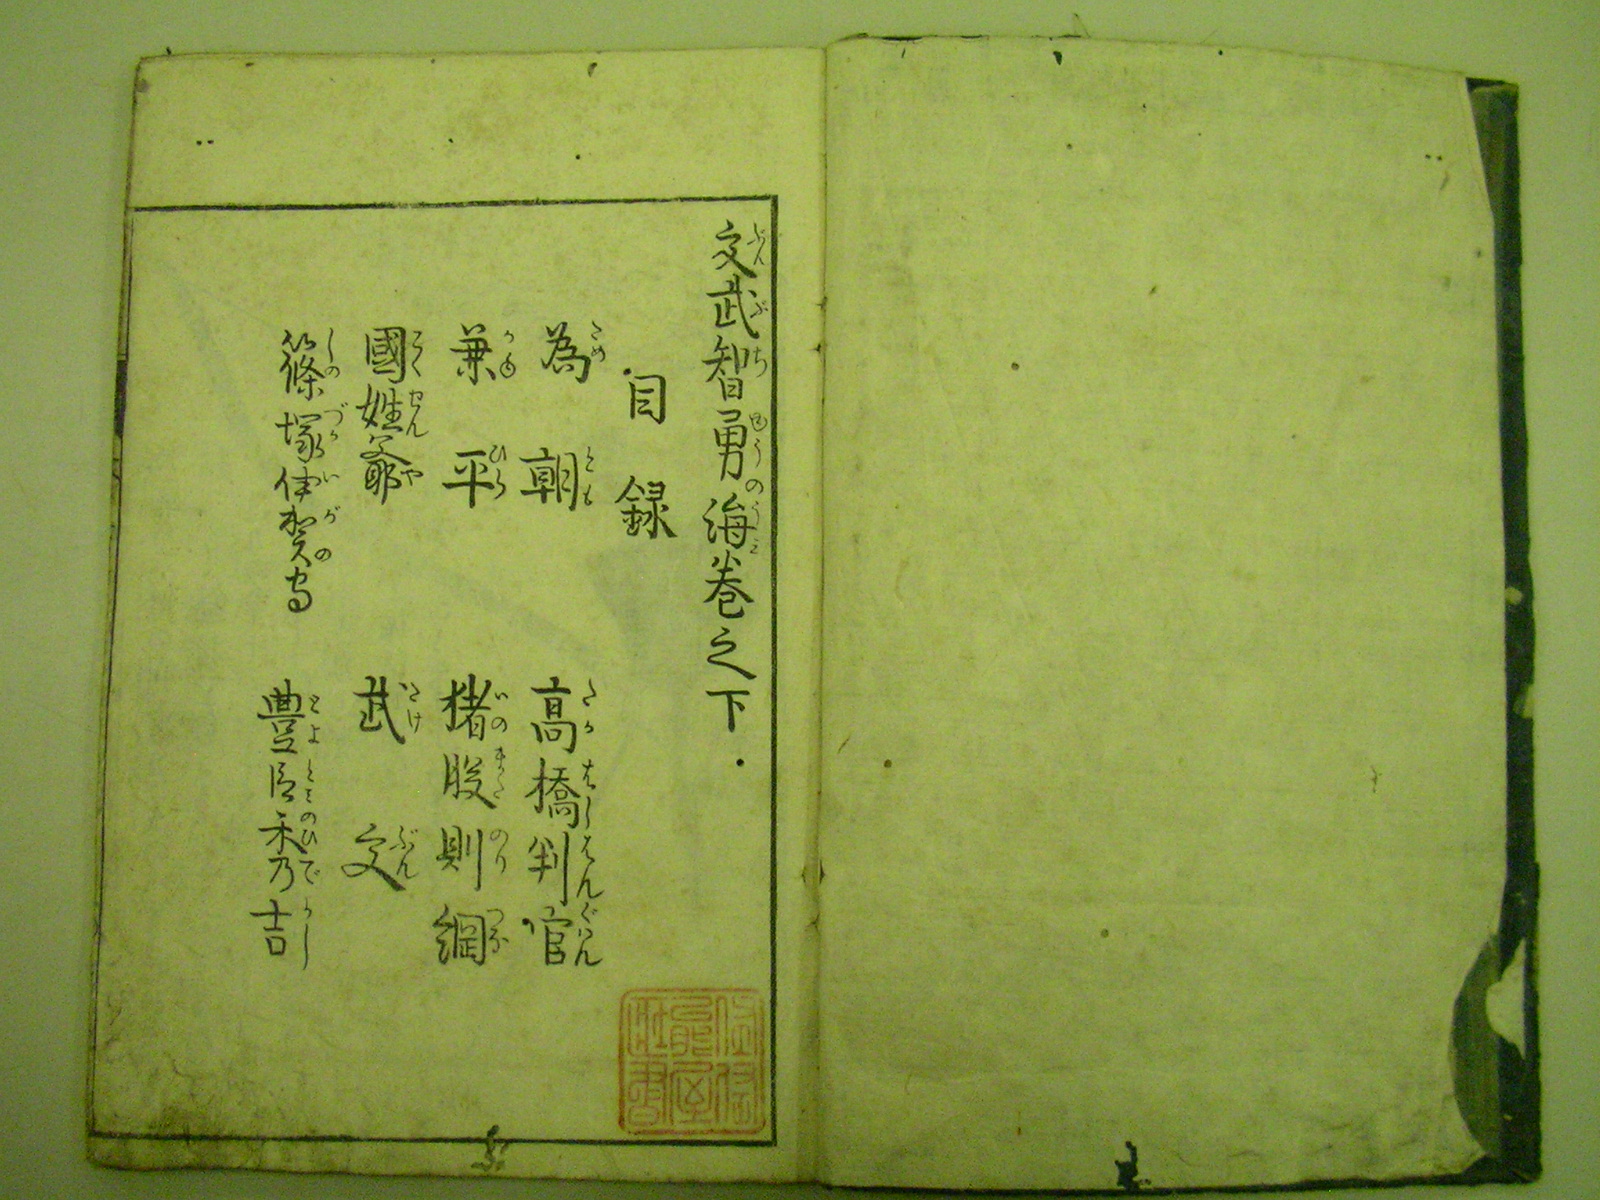 文武智勇海巻之下
目録
為朝 高橋判官
兼平 猪股則綱
國姓爺 武文
篠塚伊賀守 豊臣秀吉